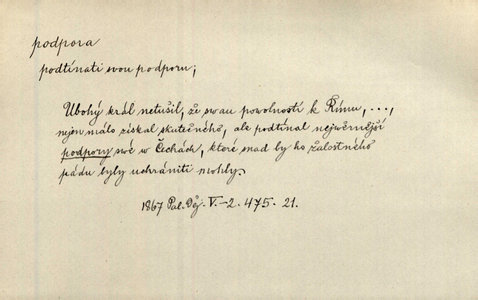 podpora
podtínati svou podporu;
Ubohý král netušil, že swau powolností k Římu, ...,
nejen málo získal skutečného, ale podtínal nejwěrnější
podpory swé w Čechách, které snad by ho žalostného
pádu byly uchrániti mohly.
1867 Pal. Děj. V.-2. 475. 21.